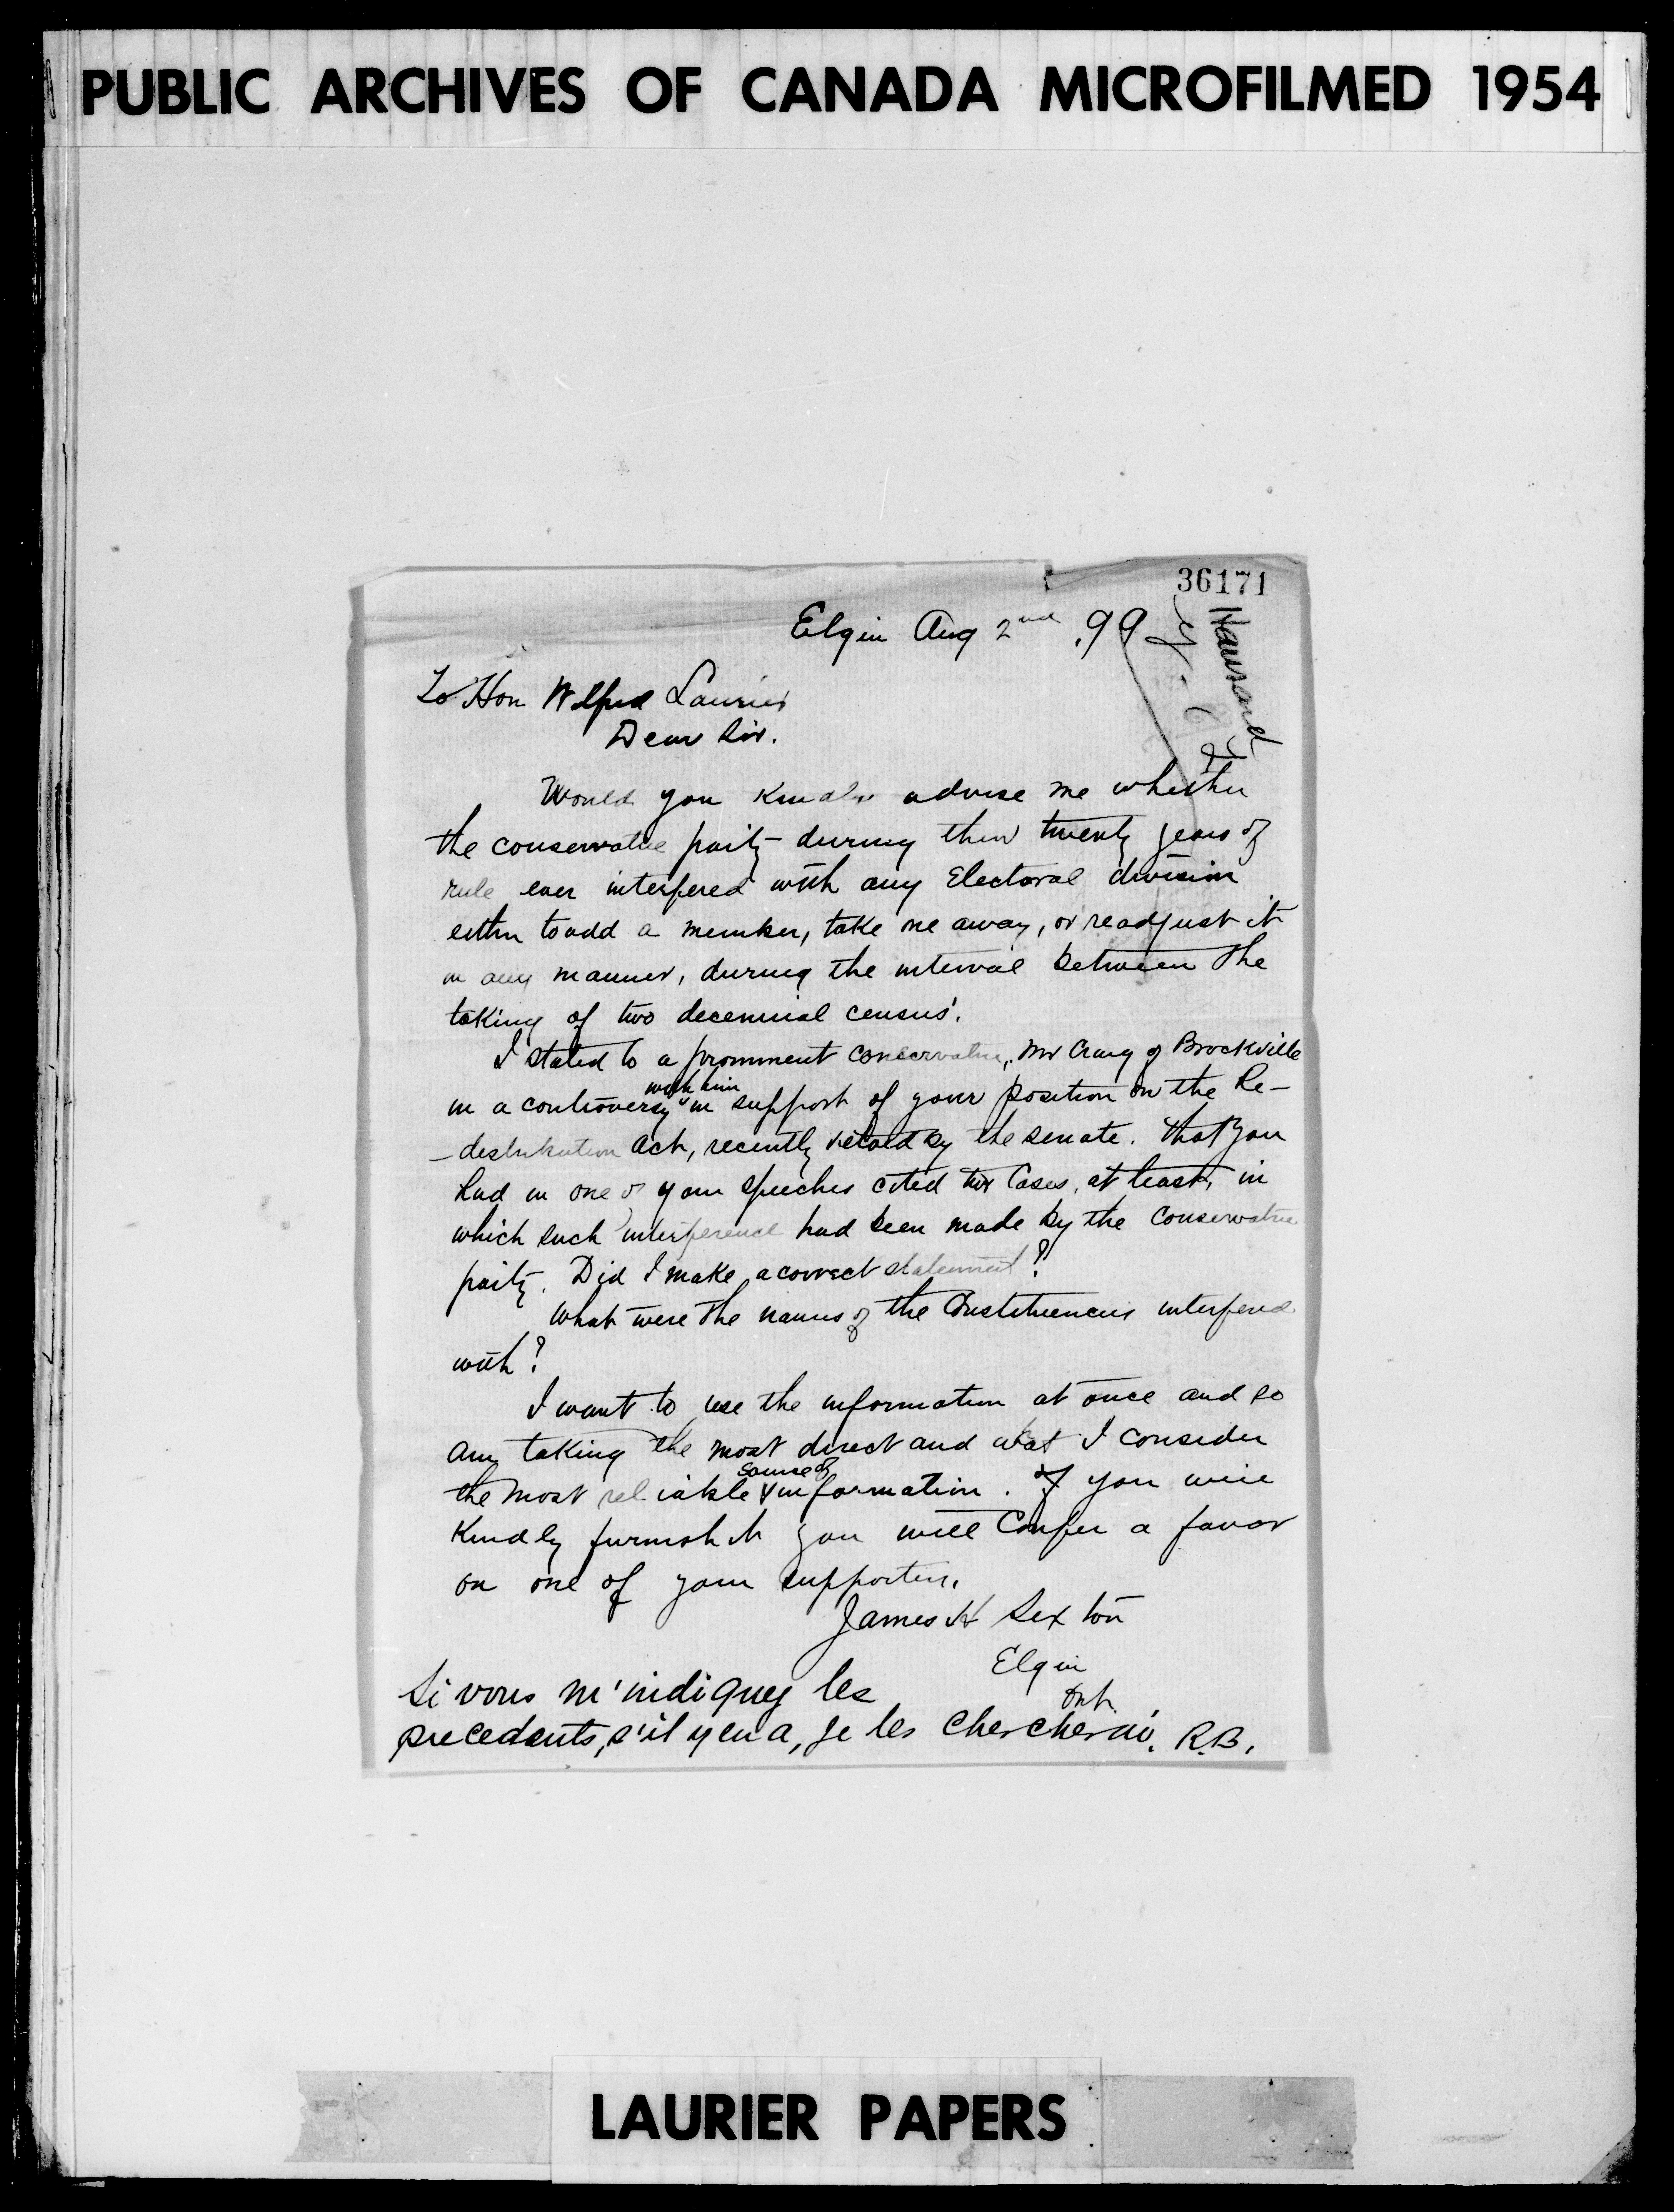 PUBLIC ARCHIVES OF CANADA MICROFILMED 1954
36171
Hansard
Elgin Aug 2nd .99
To Hon Wilfred Laurier
Dear Sir.
Would you kindly advise me whether
the conservative party during their twenty years of
rule ever interfered with any Electoral division
either to add a member, take one away, or readjust it
in any manner, during the interval between the
taking of two decennial census'.
I stated to a prominent conservative, Mr Craig of Brockville
with him
in a controversy in support of your position on the Re-
-destribution Act, recently vetoed by the senate. that you
had in one of your speeches cited two cases, at least, in
which such interference had been made by the Conservative
party. Did I make a correct statement?
What were the names of the Constituencies interfered
with?
I want to use the information at once and so
am taking the most direct and what I consider
source of
the most reliable information. If you will
Kindly furnish it you will Confer a favor
on one of your supporters.
James H Sexton
Elgin
Ont.
Si vous m'indiquez les
precedents, s'il y en a, je les chercherai. R.B.
LAURIER PAPERS